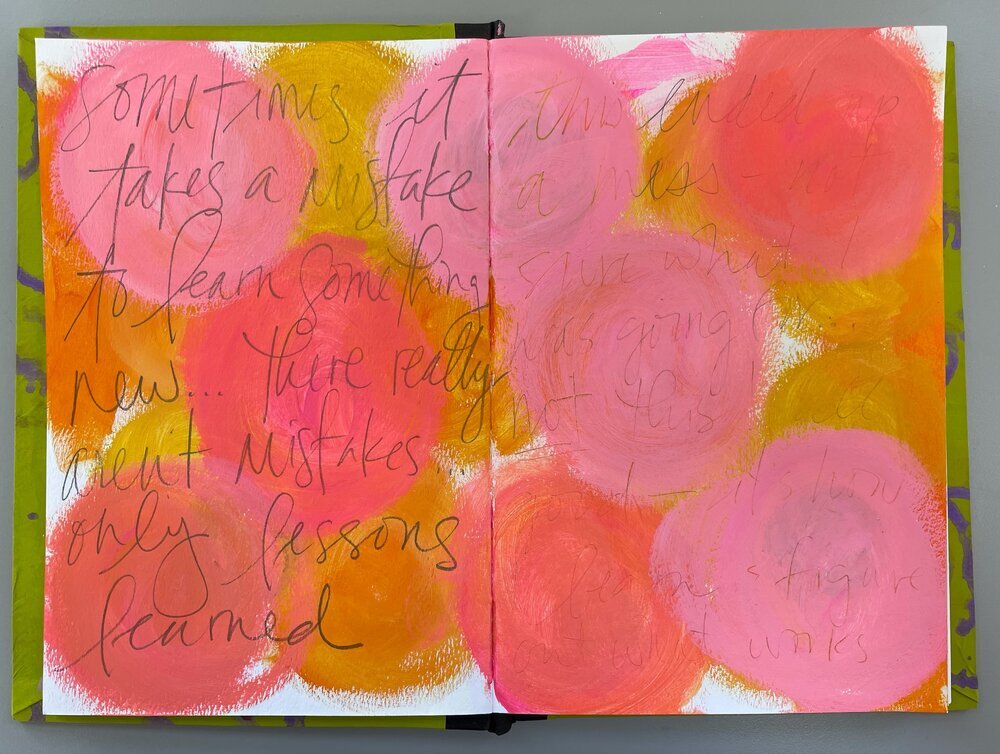 sometimes it
takes a mistake
to learn something
new... there really
aren't mistakes...
only lessons
learned
this ended up
a mess - not
sure what I
was going for...
not this
good - it's how
learn & figure
out what works